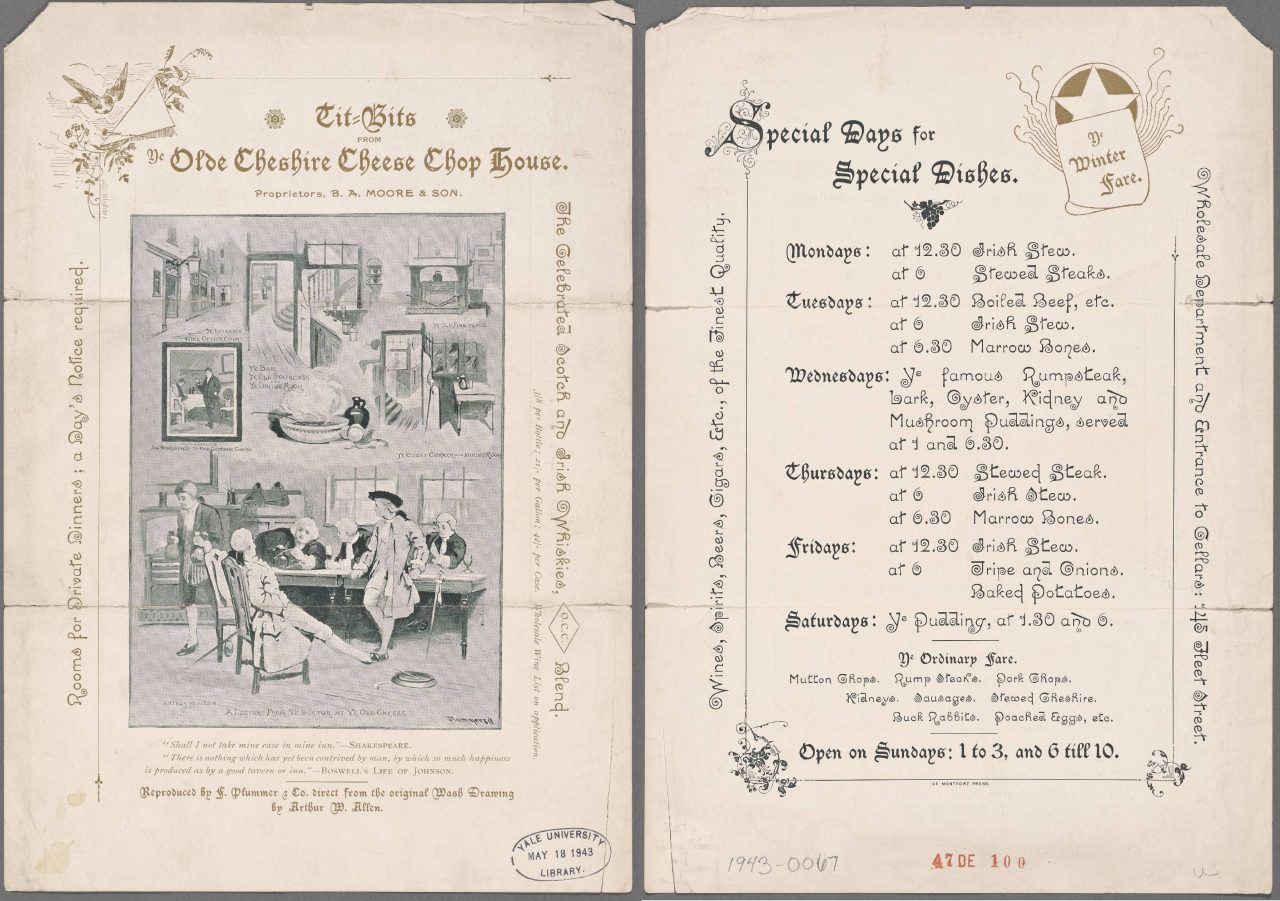 Tit=Bits
FROM
Ye Olde Cheshire Cheese Chop House.
Proprietors, B. A. MOORE & SON.
Rooms for Private Dinners; a Day's Notice required.
YE ENTRANCE
WINE OFFICE COURT
YE BAR
YE OLD STAIRCASE
YE DINING ROOM
YE OLD FIRE PLACE
YE COSEY CORNER
DINING ROOM
A LECTURE FROM YE DOCTOR AT YE OLD CHEESE
The Celebrated Scotch and Irish Whiskies, O.C.C. Blend.
3/8 per Bottle; 21/- per Gallon; 42/- per Case. Wholesale Wine List on application.
"Shall I not take mine ease in mine inn."—SHAKESPEARE.
"There is nothing which has yet been contrived by man, by which so much happiness
is produced as by a good tavern or inn."—BOSWELL'S LIFE OF JOHNSON.
Reproduced by F. Plummer & Co. direct from the original Wash Drawing
by Arthur W. Allen.
YALE UNIVERSITY
MAY 18 1943
LIBRARY.
Special Days for
Special Dishes.
Ye
Winter
Fare.
Wines, Spirits, Beers, Cigars, Etc., of the Finest Quality.
Mondays: at 12.30 Irish Stew.
at 6 Stewed Steaks.
Tuesdays: at 12.30 Boiled Beef, etc.
at 6 Irish Stew.
at 6.30 Marrow Bones.
Wednesdays: Ye famous Rumpsteak,
Lark, Oyster, Kidney and
Mushroom Puddings, served
at 1 and 6.30.
Thursdays: at 12.30 Stewed Steak.
at 6 Irish Stew.
at 6.30 Marrow Bones.
Fridays: at 12.30 Irish Stew.
at 6 Tripe and Onions.
Baked Potatoes.
Saturdays: Ye Pudding, at 1.30 and 6.
Ye Ordinary Fare.
Mutton Chops. Rump Steaks. Pork Chops.
Kidneys. Sausages. Stewed Cheshire.
Buck Rabbits. Poached Eggs, etc.
Open on Sundays: 1 to 3, and 6 till 10.
DE MONTFORT PRESS.
Wholesale Department and Entrance to Cellars: 145 Fleet Street.
1943-0067
47DE 100